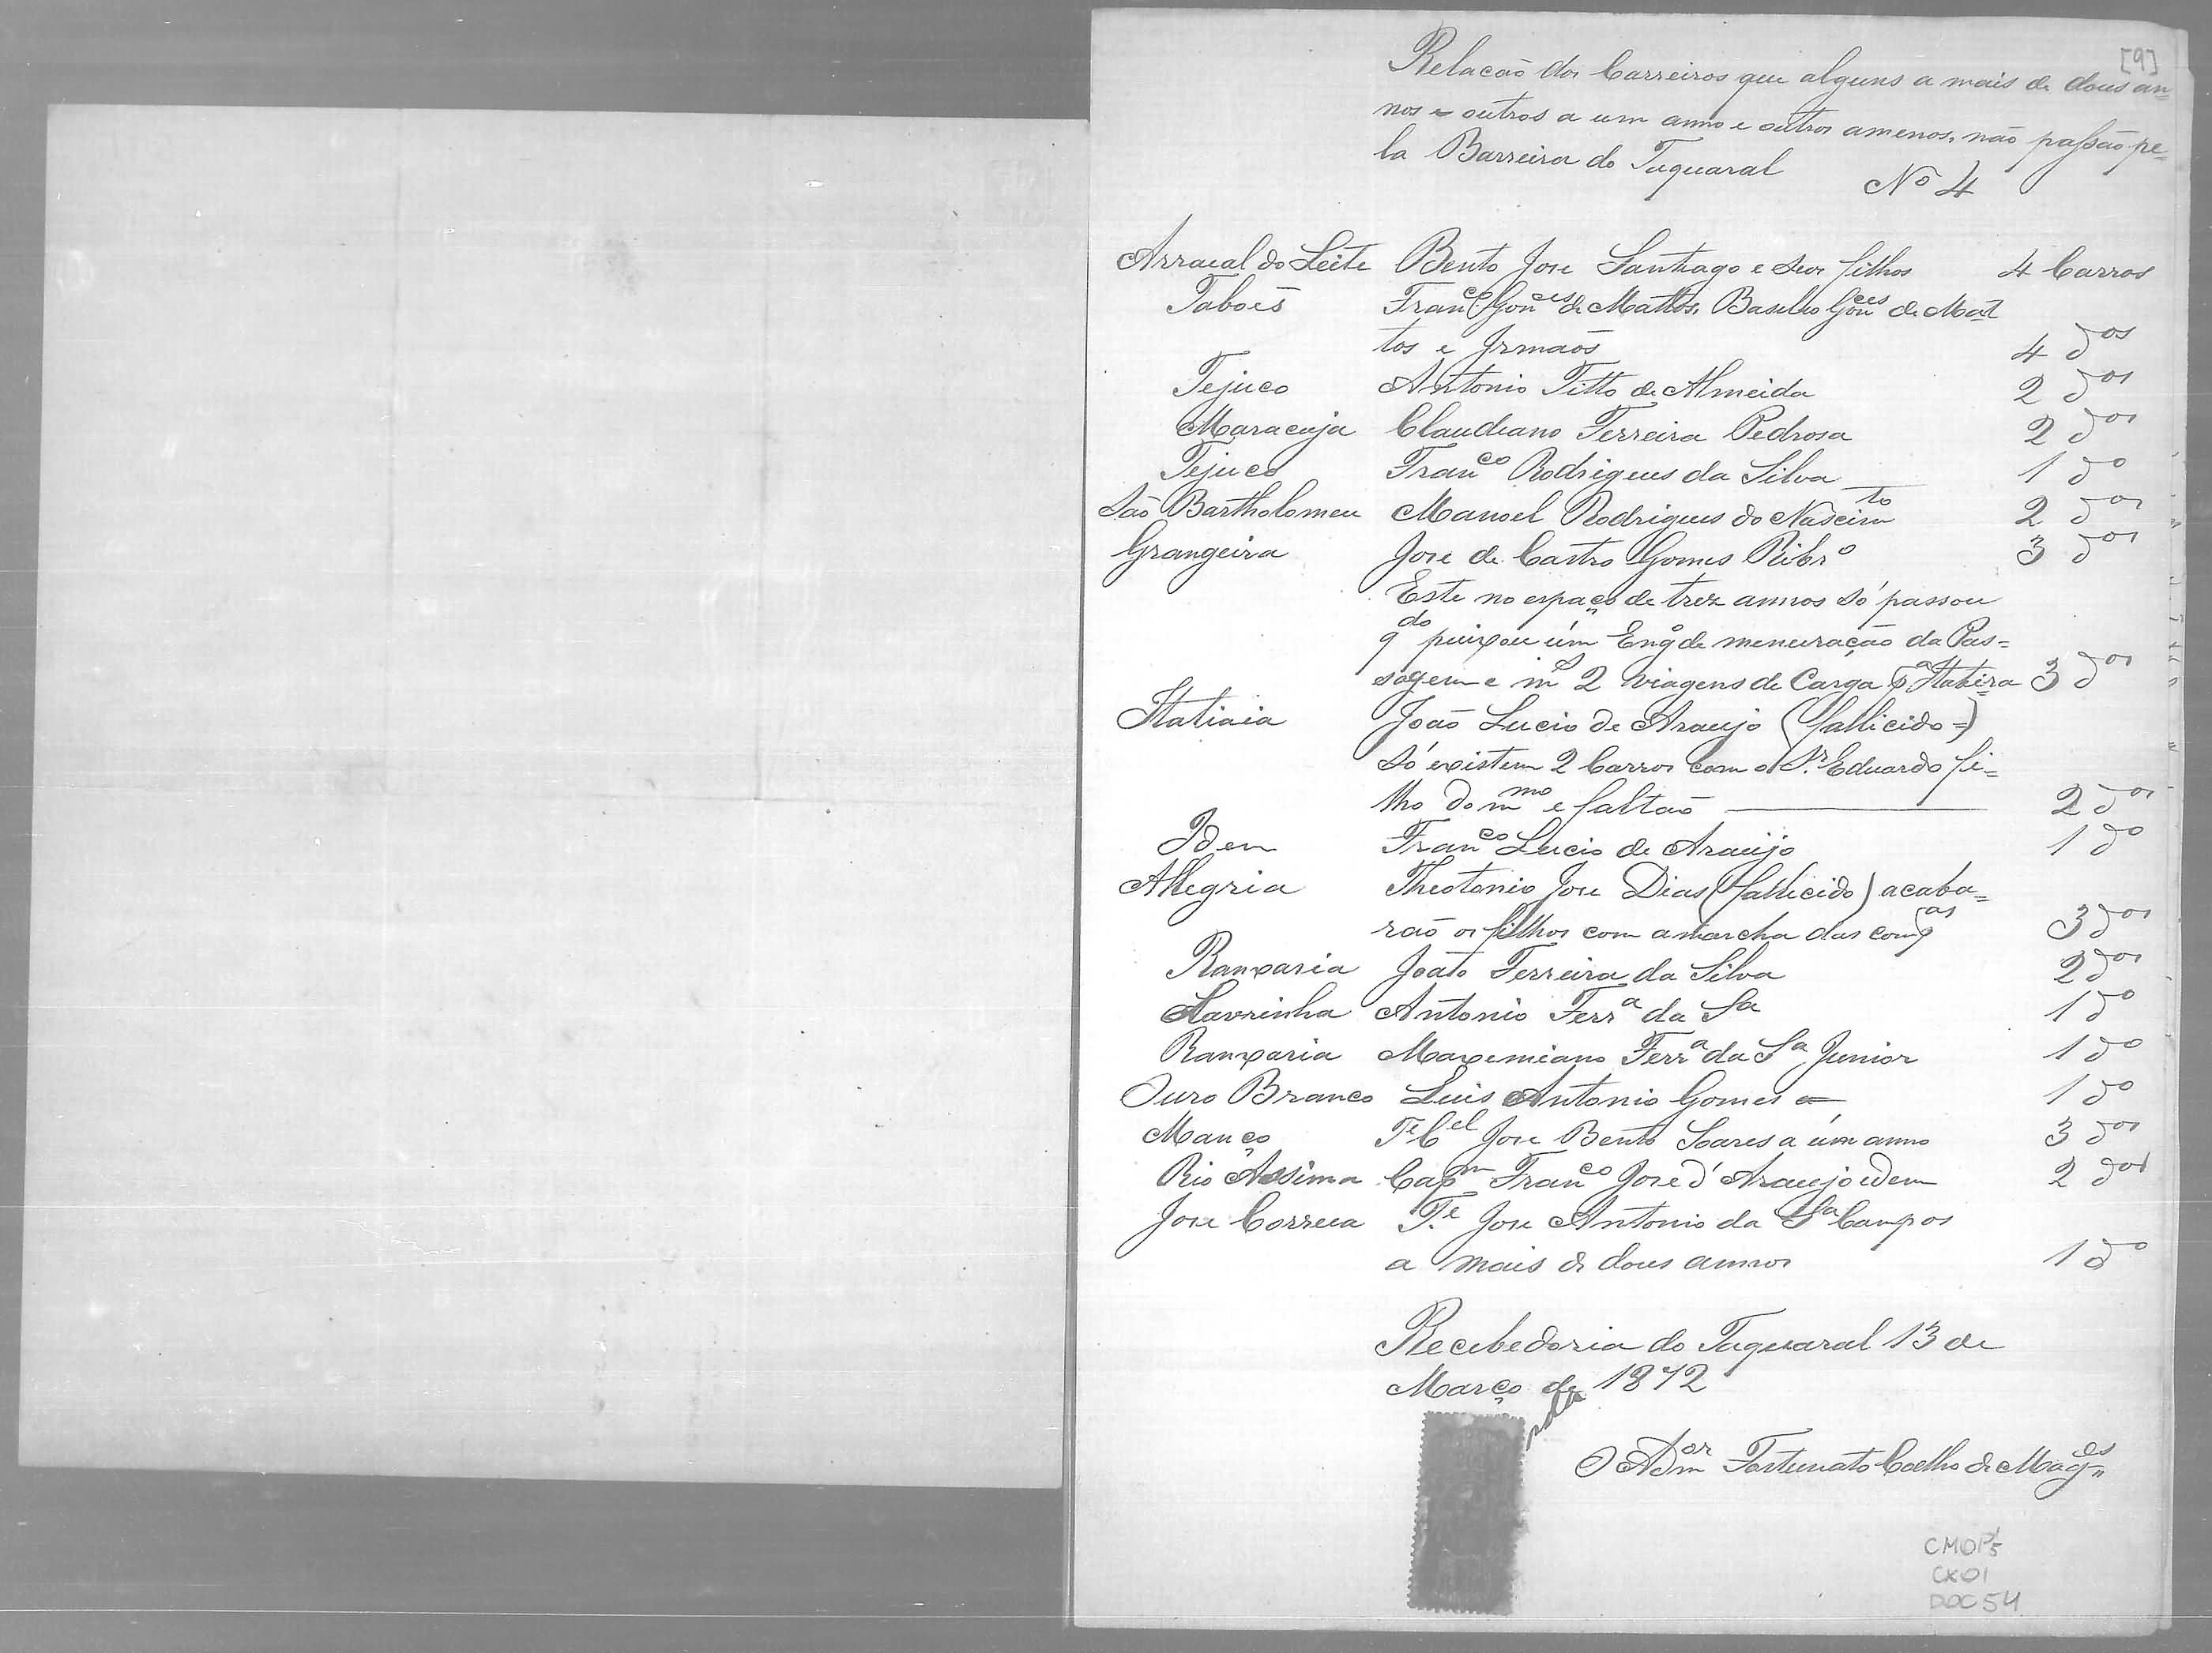 [9]
Relacaõ dos Carreiros que alguns a mais de dous an=
nos e outros a um anno e outros amenos, não passão pe=
la Barreira do Taquaral
Nº 4
Arraeal do Leite Bento Jose Santiago e seos filhos 4 Carros
Taboẽs Franco Gonces de Mattos, Basilio Gonces de Mat
tos e Irmaõs 4 dos
Tejuco Antonio Titto de Almeida 2 dos
Maracuja Claudiano Ferreira Pedrosa 2 dos
Tejuco Franco Rodrigues da Silva 1 do
São Bartholomeu Manoel Rodrigues do Nascimto 2 dos
Grangeira Jose de Castro Gomes Ribro 3 dos
Este no espaço de trez annos só passou
qdo puixou úm Engo de meneração da Pas=
sagem e ms 2 viagens de Carga pa Itabira 3 dos
Itatiaia João Lucio de Araujo (fallicido=)
só existem 2 Carros com o Sr. Eduardo fi=
lho do mmo e faltaõ 2 dos
Idem Franco Lucio de Araujo 1 do
Allegria Theotonio Jose Dias (fallicido) acaba=
raõ os filhos com a marcha das compas 3 dos
Ranxaria Joaõ Ferreira da Silva 2 dos
Lavrinha Antonio Ferra da Sa 1 do
Ranxaria Maxemiano Ferra da Sa Junior 1 do
Ouro Branco Luis Antonio Gomes 1 do
Manço Te Cel Jose Bento Soares a úm anno 3 dos
Rio Assima Capm Franco Jose d'Araujo idem 2 dos
Jose Correia Te. Jose Antonio da Sa Campos
a mais de dous annos 1 do
Recebedoria do Taquaral 13 de
Março de 1872
O Admor Fortunato Coelho de Magdes
CMOP
CX01
DOC 54